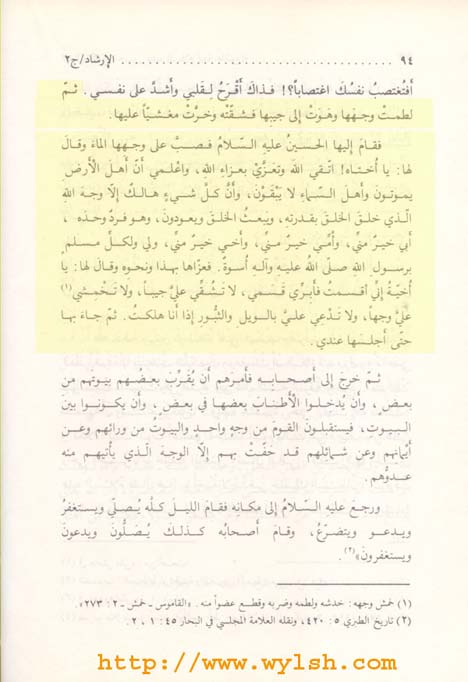 ٩٤ . . . . . . . . . . . . . . . . . . . . . . . . . . . . . . . . . . . . الإرشاد/ج٢
أَفتُغتصبُ نفسُكَ اغتصاباً؟! فذاكَ أَقْرَحُ لِقلبي وأَشدُّ على نفسي . ثمّ
لطمتْ وجهَها وهَوَتْ إلى جيبِها فشقّتْه وخرَّتْ مغشيّاً عليها.
فقامَ إليها الحسينُ عليهِ السّلامُ فصبَّ على وجهِها الماءَ وقالَ
لها: يا أُختاه! اتّقي اللهَ وتعَزَّيْ بعزاءِ اللهِ، واعْلمي أَنَّ أَهلَ الأرضِ
يموتونَ وأَهلَ السّماءِ لا يَبْقَوْنَ، وأَنَّ كلَّ شيءٍ هالكٌ إلاّ وجهَ اللهِ
الّذي خلقَ الخلقَ بقدرتِه، ويَبعثُ الخلقَ ويعودونَ، وهو فردٌ وحدَه،
أَبي خيرٌ منِّي، وأُمِّي خيرٌ منِّي، وأَخي خيرٌ منِّي، ولي ولكلِّ مسلمٍ
برسولِ اللهِ صلّى اللهُ عليهِ وآلهِ أُسوةٌ. فعزّاها بهذا ونحوِه وقالَ لها: يا
أُخيّةُ إنِّي أَقسمتُ فأَبِرِّي قَسَمي، لا تَشُقِّي عليَّ جيباً، ولا تَخْمشي(١)
عليَّ وجهاً، ولا تَدْعِي عليَّ بالويلِ والثُّبورِ إذا أَنا هلكتُ. ثمّ جاءَ بها
حتّى أَجلسَها عندي.
ثمّ خرجَ إلى أَصحابِه فأَمرَهم أَن يُقَرِّبَ بعضُهم بيوتَهم من
بعضٍ، وأَن يُدخِلوا الأطنابَ بعضها في بعضٍ، وأَن يكونوا بينَ
البيوتِ، فيستقبلونَ القومَ من وجهٍ واحدٍ والبيوتُ من ورائهم وعن
أَيْمانِهم وعن شمائلِهم قد حَفَّتْ بهم إلاّ الوجهَ الّذي يأتيهم منه
عدوُّهم.
ورجعَ عليهِ السّلامُ إلى مكانِه فقامَ الليلَ كلَّه يُصلِّي ويستغفرُ
ويدعو ويتضرّعُ، وقامَ أَصحابُه كذلكَ يُصَلُّونَ ويدعونَ
ويستغفرونَ»(٢).
(١) خمش وجهه: خدشه ولطمه وضربه وقطع عضواً منه. «القاموس ـ خمش ـ ٢ : ٢٧٣».
(٢) تاريخ الطبري ٥ : ٤٢٠، ونقله العلامة المجلسي في البحار ٤٥ : ١ ، ٢ .
http://www.wylsh.com